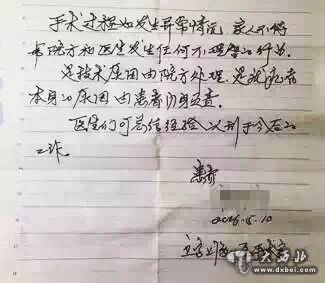 手术过程如发生异常情况 家人不得
与院方和医生发生任何不理智的行为.
是技术原因由院方处理. 是我患者
本身的原因 由患者自身负责.
医生们可总结经验 以利于今后的
工作.
患者
2016.5.10
大西北
www.dxbei.com